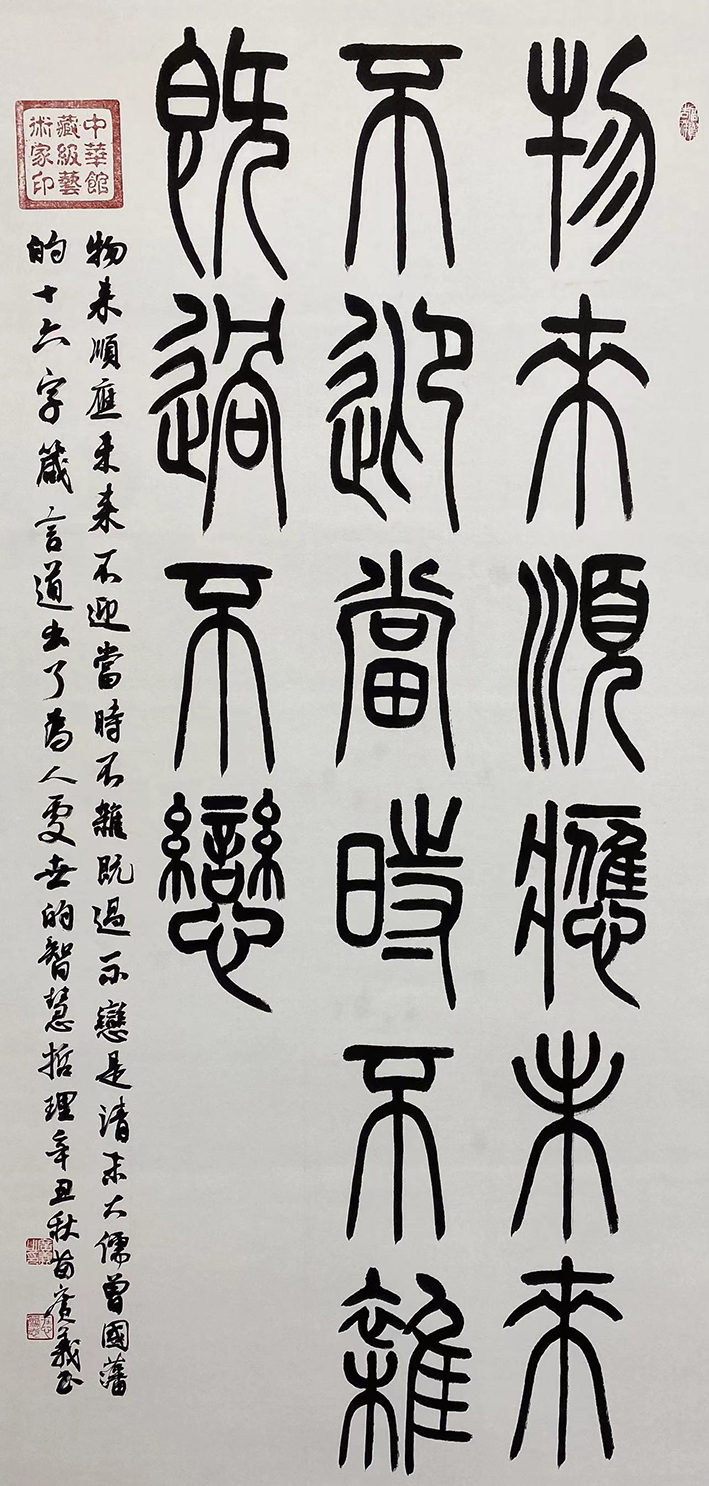 物來順應未來
不迎當時不雜
既過不戀
物來順應未來不迎當時不雜既過不戀是清末大儒曾國藩
的十六字箴言道出了為人處世的智慧哲理辛丑秋苗廣義書
中華館
藏級藝
術家印